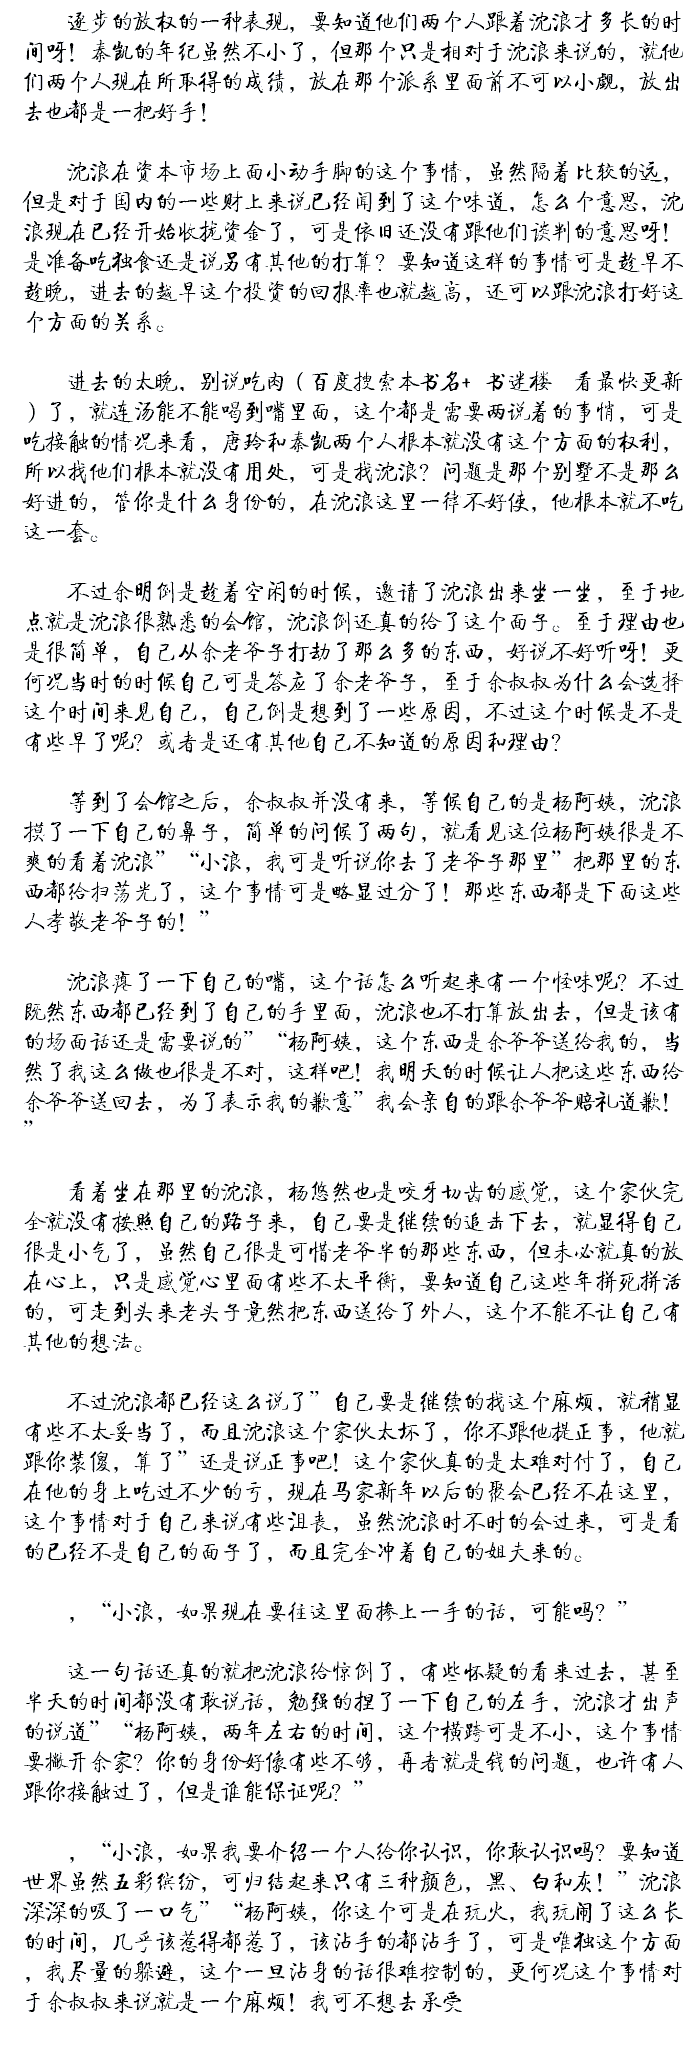 逐步的放权的一种表现，要知道他们两个人跟着沈浪才多长的时
间呀！秦凯的年纪虽然不小了，但那个只是相对于沈浪来说的，就他
们两个人现在所取得的成绩，放在那个派系里面前不可以小觑，放出
去也都是一把好手！
沈浪在资本市场上面小动手脚的这个事情，虽然隔着比较的远，
但是对于国内的一些财上来说已经闻到了这个味道，怎么个意思，沈
浪现在已经开始收拢资金了，可是依旧还没有跟他们谈判的意思呀！
是准备吃独食还是说另有其他的打算？要知道这样的事情可是趁早不
趁晚，进去的越早这个投资的回报率也就越高，还可以跟沈浪打好这
个方面的关系。
进去的太晚，别说吃肉（百度搜索本书名+ 书迷楼 看最快更新
）了，就连汤能不能喝到嘴里面，这个都是需要两说着的事情，可是
吃接触的情况来看，唐玲和秦凯两个人根本就没有这个方面的权利，
所以找他们根本就没有用处，可是找沈浪？问题是那个别墅不是那么
好进的，管你是什么身份的，在沈浪这里一律不好使，他根本就不吃
这一套。
不过余明倒是趁着空闲的时候，邀请了沈浪出来坐一坐，至于地
点就是沈浪很熟悉的会馆，沈浪倒还真的给了这个面子。至于理由也
是很简单，自己从余老爷子打劫了那么多的东西，好说不好听呀！更
何况当时的时候自己可是答应了余老爷子，至于余叔叔为什么会选择
这个时间来见自己，自己倒是想到了一些原因，不过这个时候是不是
有些早了呢？或者是还有其他自己不知道的原因和理由？
等到了会馆之后，余叔叔并没有来，等候自己的是杨阿姨，沈浪
摸了一下自己的鼻子，简单的问候了两句，就看见这位杨阿姨很是不
爽的看着沈浪”“小浪，我可是听说你去了老爷子那里”把那里的东
西都给扫荡光了，这个事情可是略显过分了！那些东西都是下面这些
人孝敬老爷子的！”
沈浪瘪了一下自己的嘴，这个话怎么听起来有一个怪味呢？不过
既然东西都已经到了自己的手里面，沈浪也不打算放出去，但是该有
的场面话还是需要说的”“杨阿姨，这个东西是余爷爷送给我的，当
然了我这么做也很是不对，这样吧！我明天的时候让人把这些东西给
余爷爷送回去，为了表示我的歉意”我会亲自的跟余爷爷赔礼道歉！
”
看着坐在那里的沈浪，杨悠然也是咬牙切齿的感觉，这个家伙完
全就没有按照自己的路子来，自己要是继续的追击下去，就显得自己
很是小气了，虽然自己很是可惜老爷半的那些东西，但未必就真的放
在心上，只是感觉心里面有些不太平衡，要知道自己这些年拼死拼活
的，可走到头来老头子竟然把东西送给了外人，这个不能不让自己有
其他的想法。
不过沈浪都已经这么说了”自己要是继续的找这个麻烦，就稍显
有些不太妥当了，而且沈浪这个家伙太坏了，你不跟他提正事，他就
跟你装傻，算了”还是说正事吧！这个家伙真的是太难对付了，自己
在他的身上吃过不少的亏，现在马家新年以后的聚会已经不在这里，
这个事情对于自己来说有些沮丧，虽然沈浪时不时的会过来，可是看
的已经不是自己的面子了，而且完全冲着自己的姐夫来的。
，“小浪，如果现在要往这里面掺上一手的话，可能吗？”
这一句话还真的就把沈浪给惊倒了，有些怀疑的看来过去，甚至
半天的时间都没有敢说话，勉强的捏了一下自己的左手，沈浪才出声
的说道”“杨阿姨，两年左右的时间，这个横跨可是不小，这个事情
要撇开余家？你的身份好像有些不够，再者就是钱的问题，也许有人
跟你接触过了，但是谁能保证呢？”
，“小浪，如果我要介绍一个人给你认识，你敢认识吗？要知道
世界虽然五彩缤纷，可归结起来只有三种颜色，黑、白和灰！”沈浪
深深的吸了一口气”“杨阿姨，你这个可是在玩火，我玩闹了这么长
的时间，几乎该惹得都惹了，该沾手的都沾手了，可是唯独这个方面
，我尽量的躲避，这个一旦沾身的话很难控制的，更何况这个事情对
于余叔叔来说就是一个麻烦！我可不想去承受